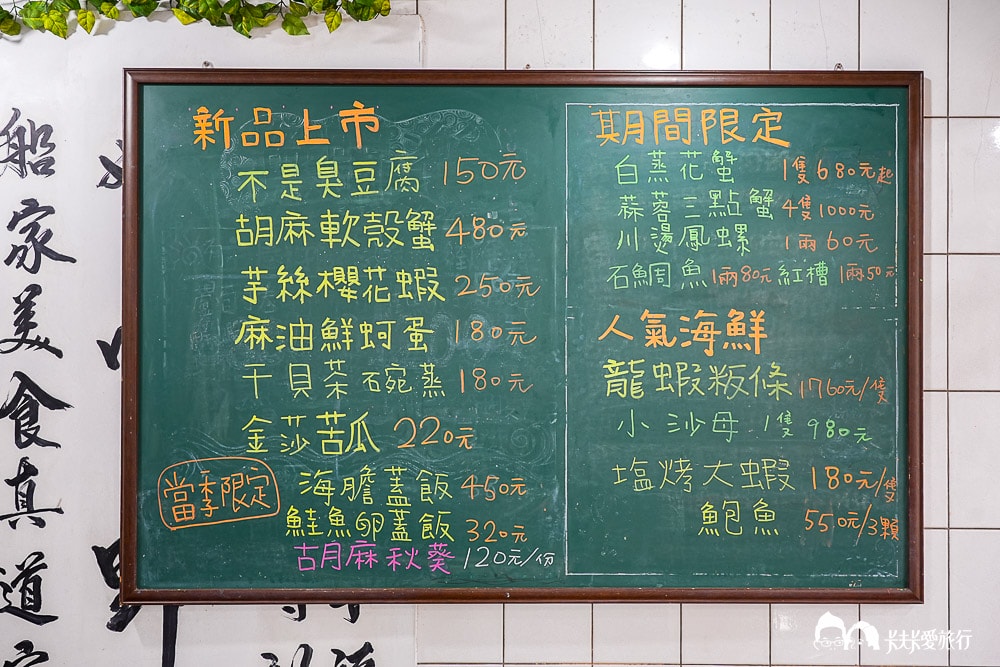 新品上市
不是臭豆腐 150元
胡麻軟殼蟹 480元
芋絲櫻花蝦 250元
麻油鮮蚵蛋 180元
干貝茶碗蒸 180元
金莎苦瓜 220元
當季限定
海膽蓋飯 450元
鮭魚卵蓋飯 320元
胡麻秋葵 120元/份
期間限定
白蒸花蟹 1隻680元起
蒜蓉三點蟹 4隻1000元
川燙鳳螺 1兩60元
石鯛魚 1兩80元 紅槽 1兩50元
人氣海鮮
龍蝦粄條 1760元/隻
小沙母 1隻 980元
塩烤大蝦 180元/隻
鮑魚 550元/3顆
船家美食真道
卡卡愛旅行